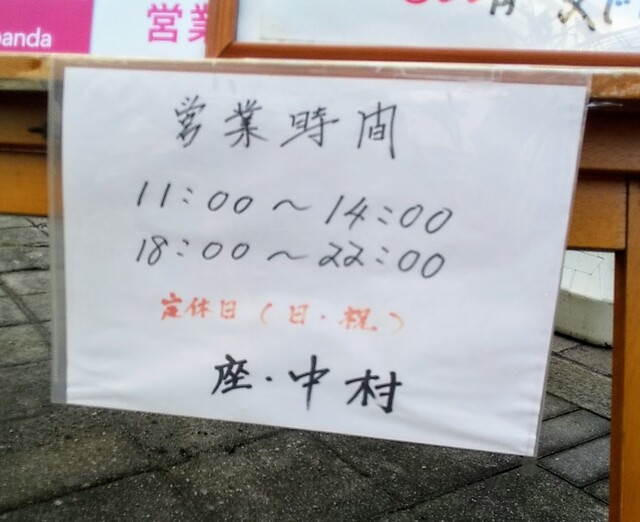 panda
営業
営業時間
11:00〜14:00
18:00〜22:00
定休日(日・祝)
座・中村